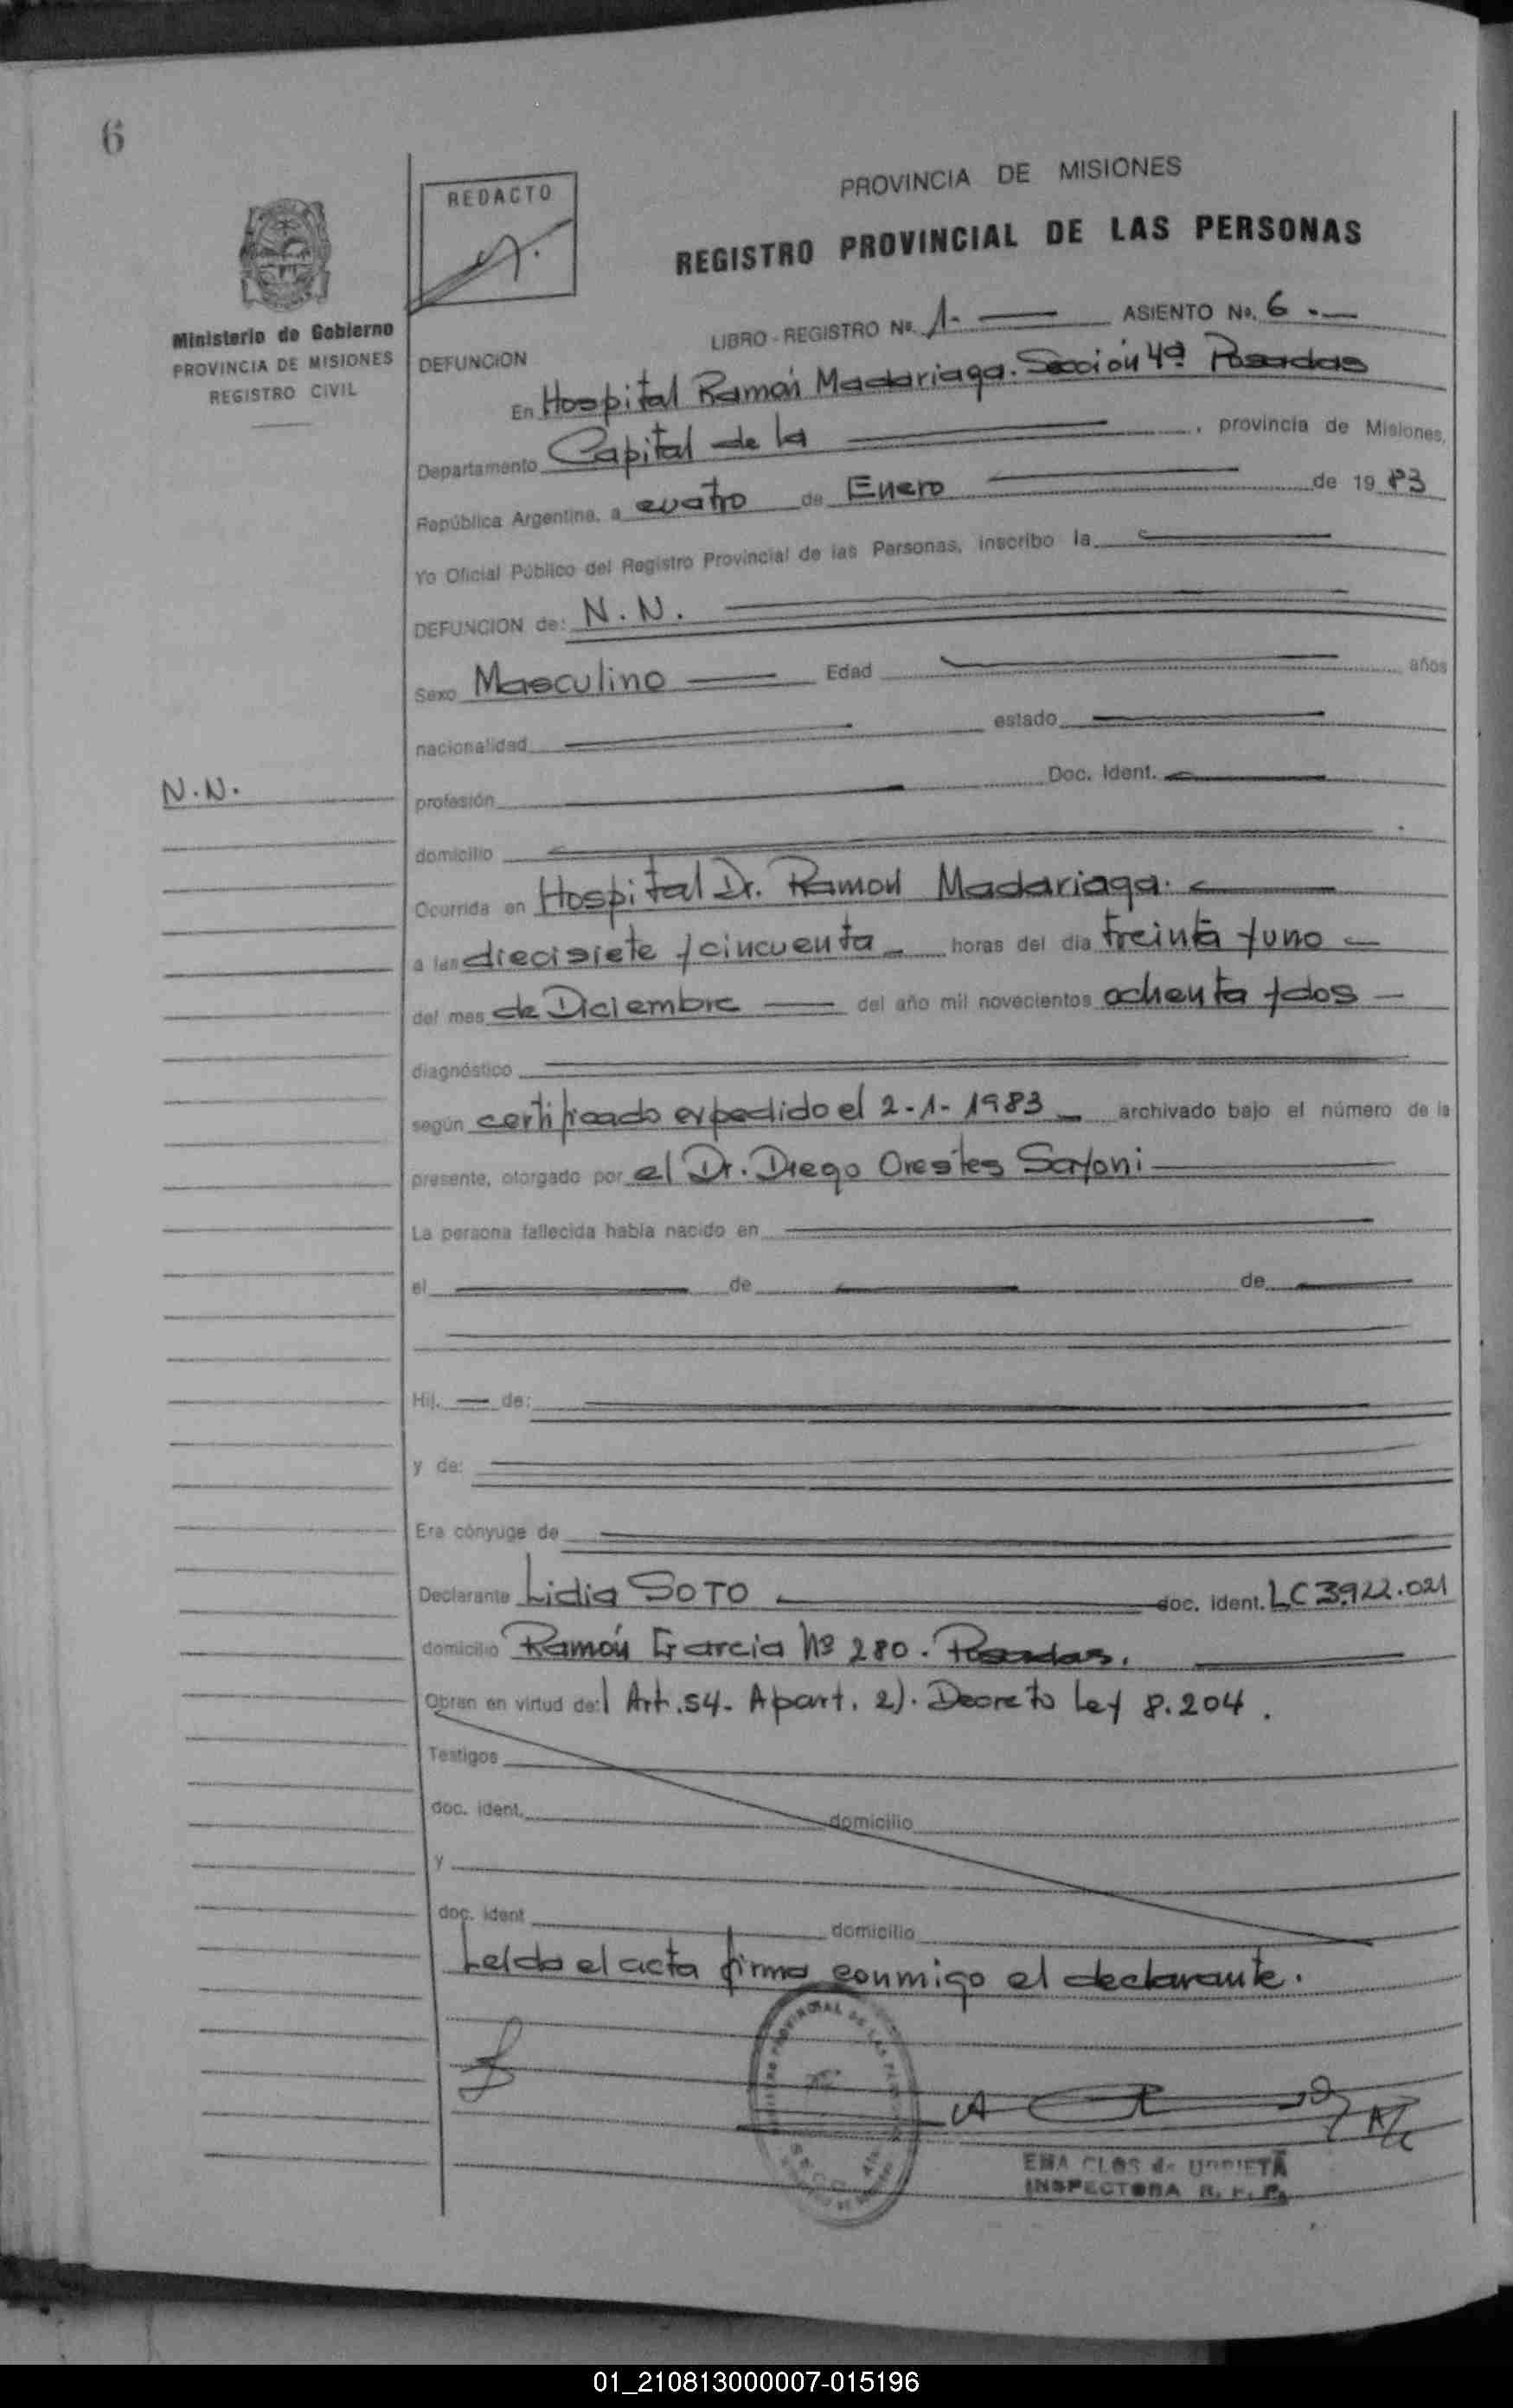 6
REDACTO
PROVINCIA DE MISIONES
REGISTRO PROVINCIAL DE LAS PERSONAS
Ministerio de Gobierno
PROVINCIA DE MISIONES
REGISTRO CIVIL
LIBRO - REGISTRO Nº. 1.- ASIENTO Nº. 6.-
DEFUNCION
En Hospital Ramón Madariaga. Sección 4ª Posadas
Departamento Capital de la , provincia de Misiones,
República Argentina, a cuatro de Enero de 1983
Yo Oficial Público del Registro Provincial de las Personas, inscribo la
DEFUNCION de: N.N.
Sexo Masculino Edad años
nacionalidad estado
N.N.
profesión Doc. Ident.
domicilio
Ocurrida en Hospital Dr. Ramon Madariaga.
a las diecisiete y cincuenta horas del día treinta y uno
del mes de Diciembre del año mil novecientos ochenta y dos
diagnóstico
según certificado expedido el 2-1-1983 archivado bajo el número de la
presente, otorgado por el Dr. Diego Orestes
La persona fallecida había nacido en
el de de
Hij. de:
y de:
Era cónyuge de
Declarante Lidia SOTO doc. ident. LC 3.922.021
domicilio Ramón Garcia Nº 280. Posadas.
Obran en virtud de: Art. 54. Apart. 2). Decreto Ley 8.204.
Testigos
doc. ident. domicilio
y
doc. ident domicilio
Leída el acta firma conmigo el declarante.
EMA CLOS de URRIETA
INSPECTORA R. P. P.
01_210813000007-015196